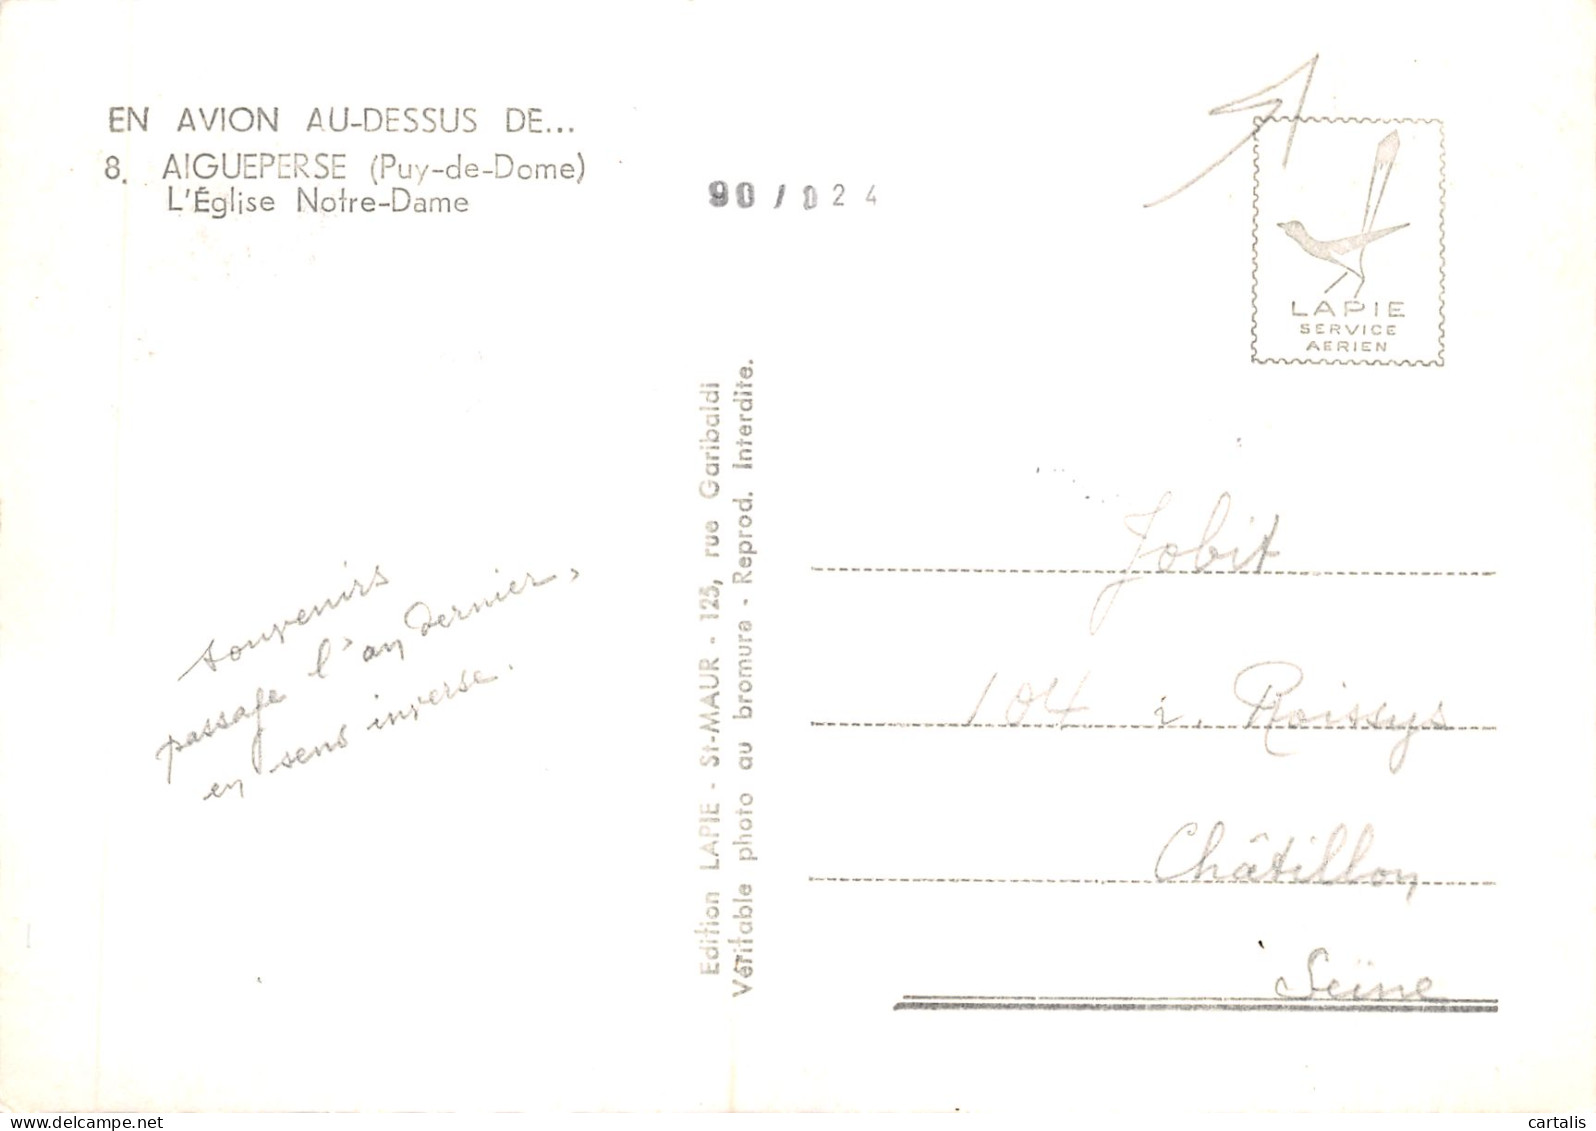 EN AVION AU-DESSUS DE...
8. AIGUEPERSE (Puy-de-Dome)
L'Église Notre-Dame
90/024
LAPIE
SERVICE
AERIEN
souvenirs
passage l'an dernier,
en sens inverse.
Edition LAPIE - St-MAUR - 125, rue Garibaldi
Véritable photo au bromure - Reprod. Interdite.
Jobit
104 r. Roissys
Châtillon
Seine
cartalis